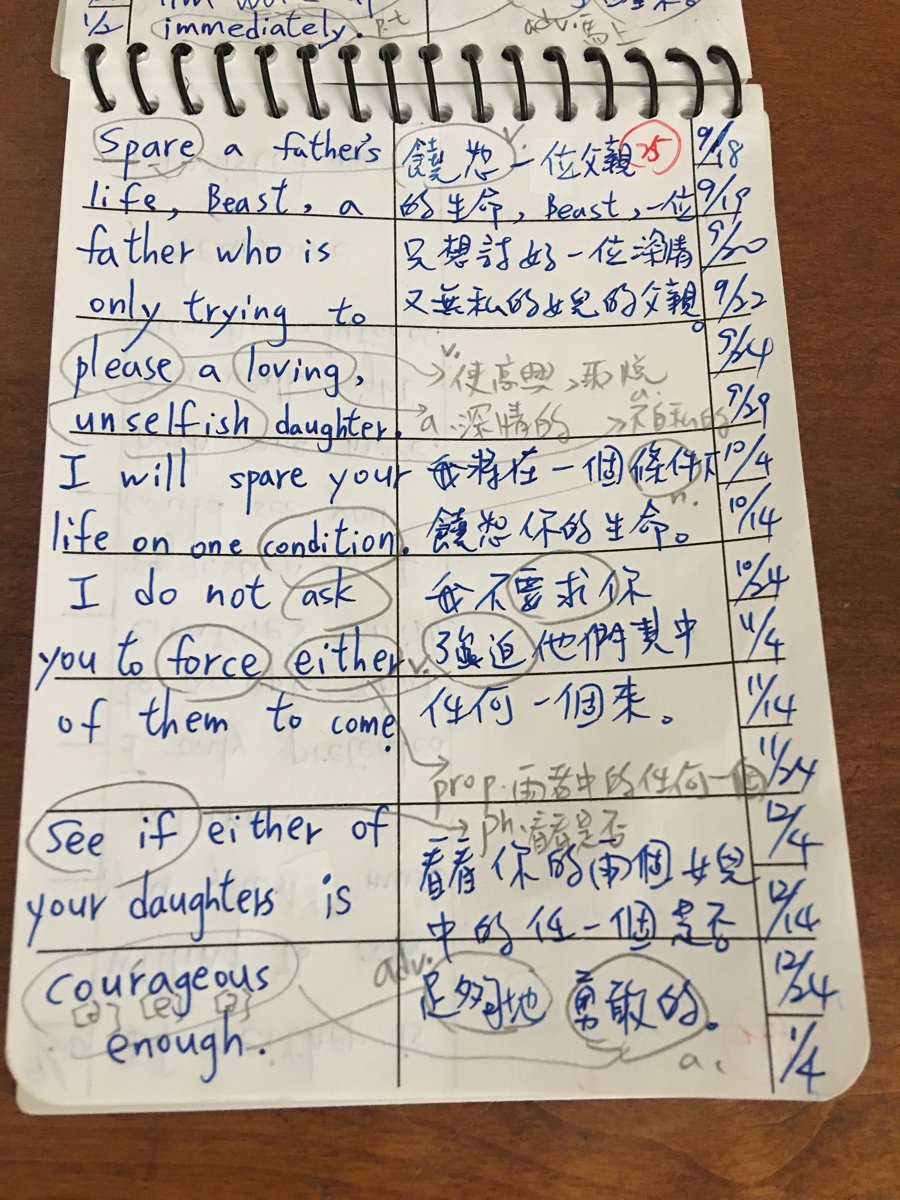 1/2 immediately. p.t adv.馬上
Spare a father's 饒恕一位父親 25 9/18
life, Beast, a 的生命, Beast, 一位 9/19
father who is 只想討好一位深情 9/20
only trying to 又無私的女兒的父親。 9/22
please a loving, v. 使高興、取悅 9/24
unselfish daughter. a.深情的 a.不自私的 9/29
I will spare your 我將在一個條件下 10/4
n.
life on one condition. 饒恕你的生命。 10/14
I do not ask 我不要求你 10/24
you to force either v. 強迫他們其中 11/4
of them to come. 任何一個來。 11/14
prop.兩者中的任何一個 11/24
See if either of ph.看看是否 12/4
看看你的(兩)個女兒
your daughters is 中的任一個是否 12/14
courageous adv. 足夠地 勇敢的。 12/24
[ə] [e] [ə]
enough. a. 1/4